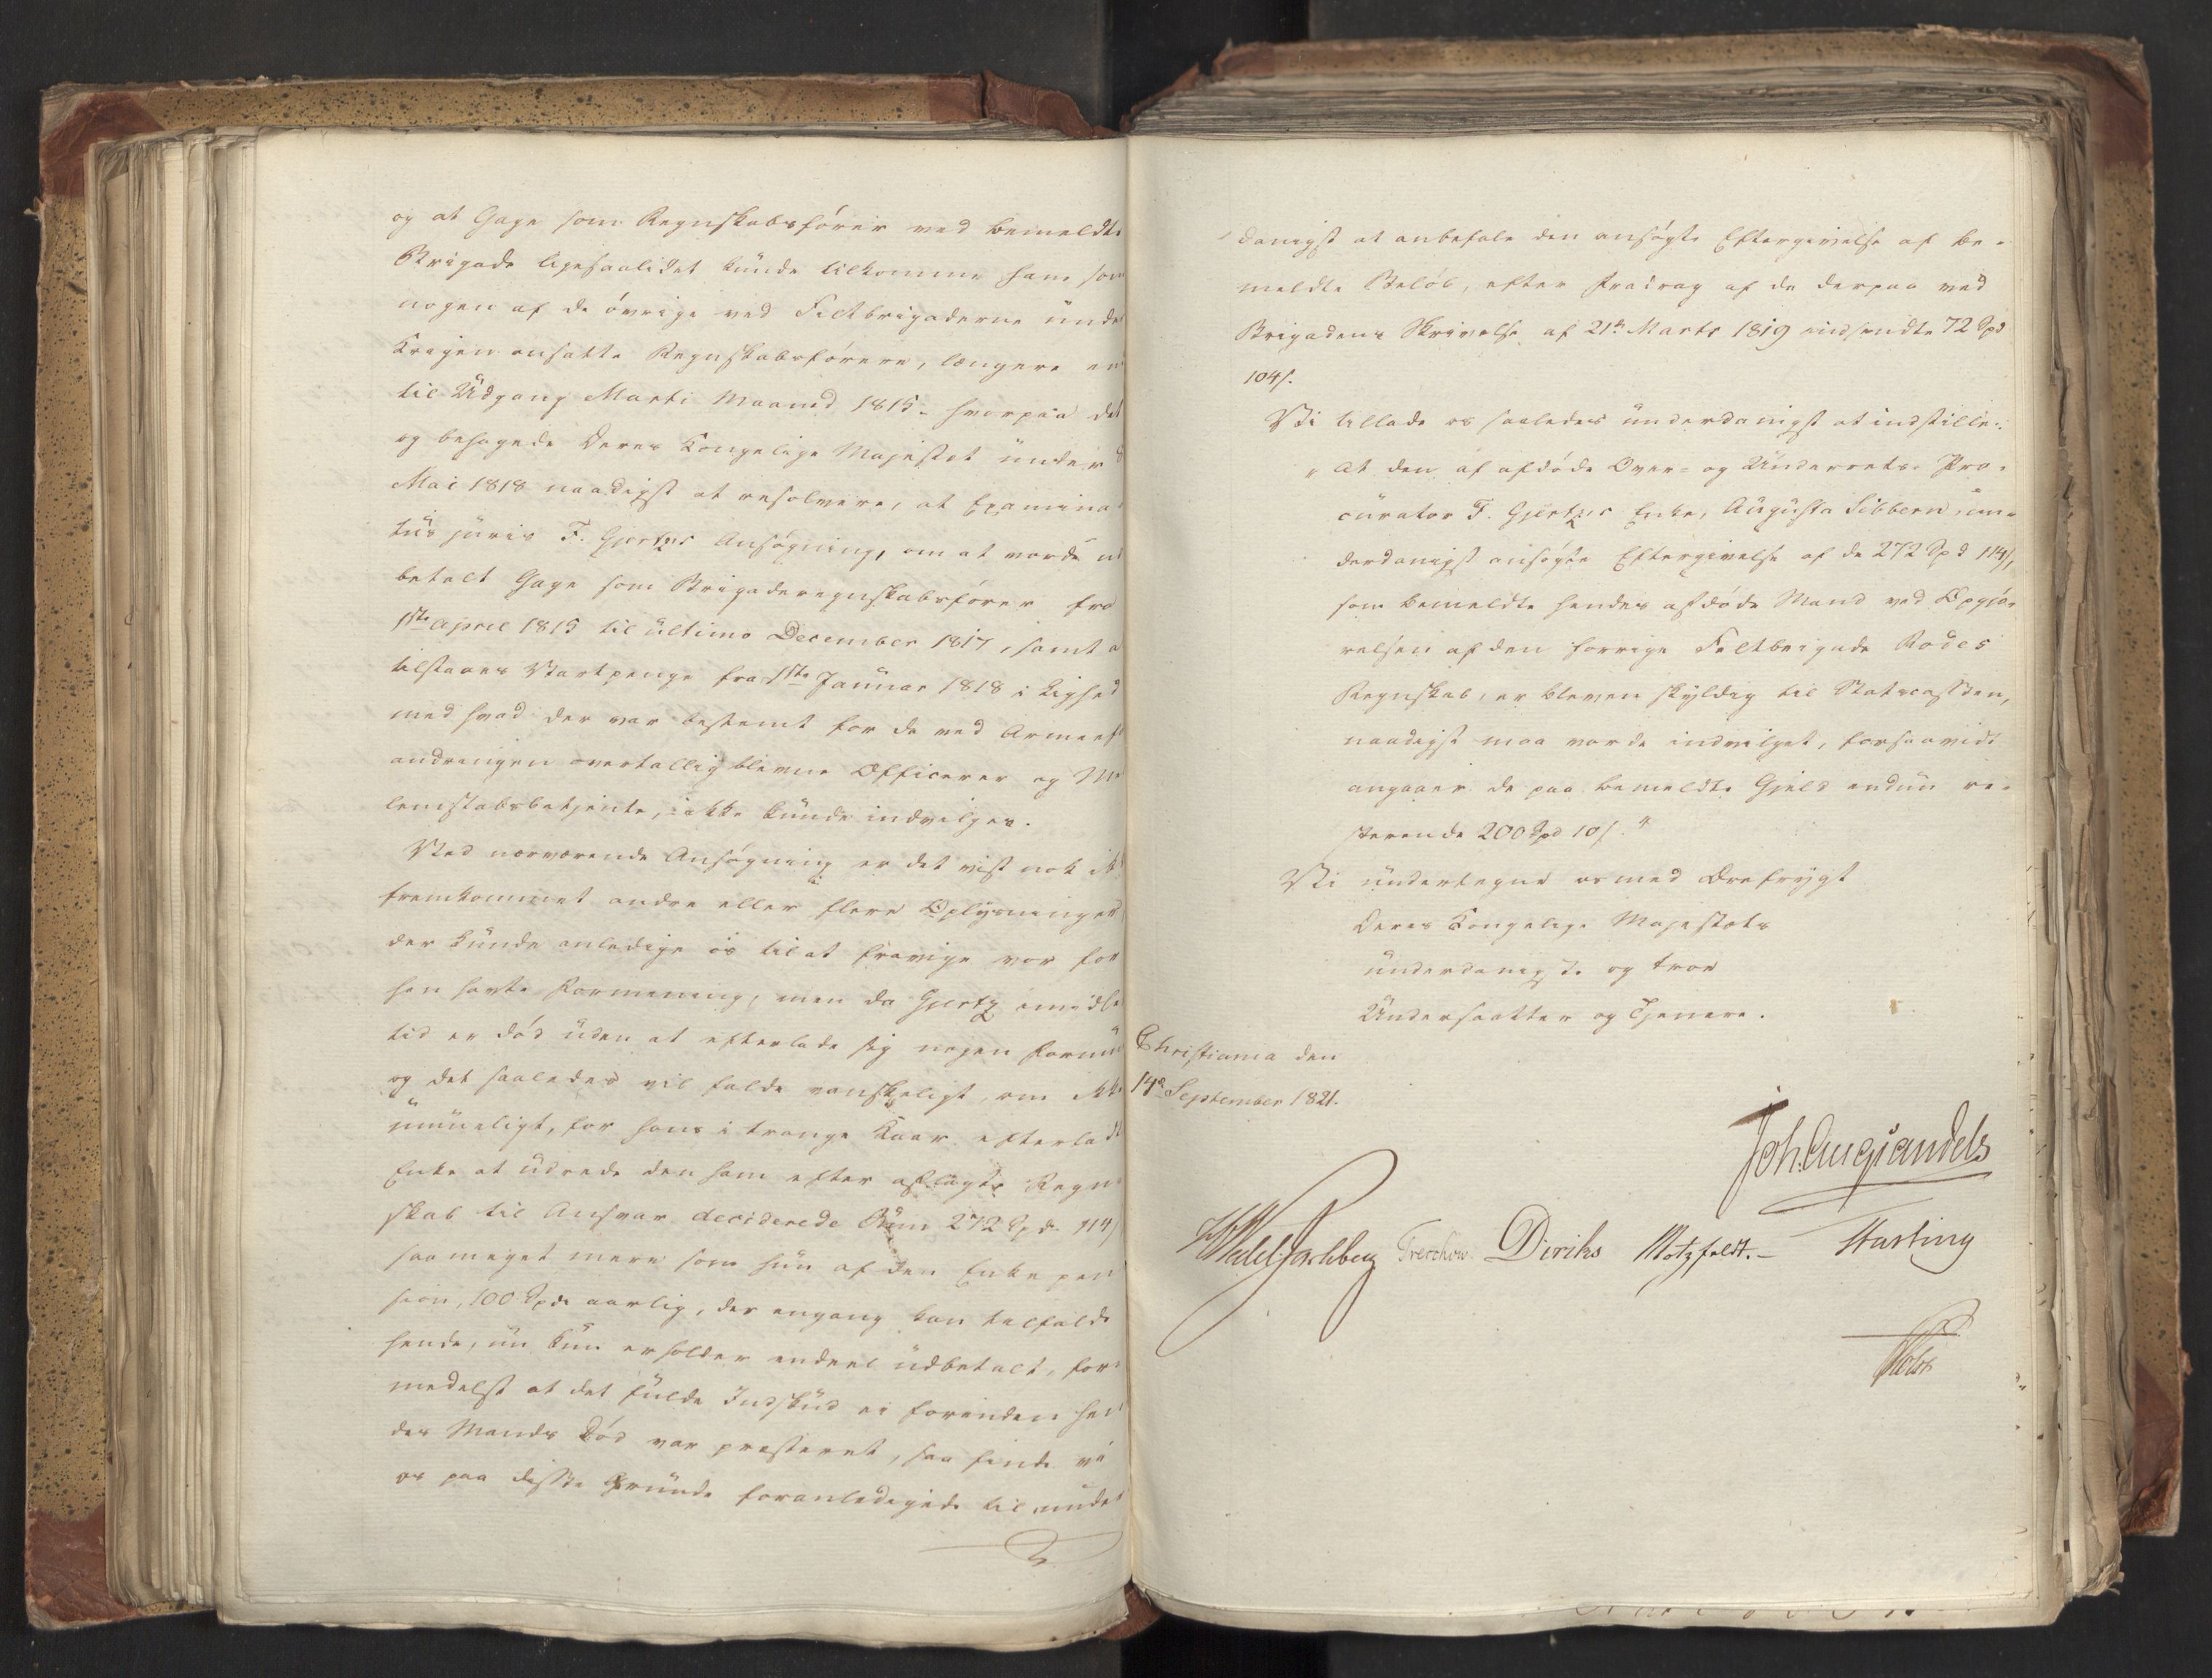 og at Gage som Regnskabsfører ved bemeldte
Brigade ligesaalidet kunde tilkomme ham som
nogen af de øvrige ved Feltbrigaderne unde
Krigen ansatte Regnskabsførere, længere en
til Udgang Marti Maaned 1815 – hvorpaa det
og behagede Deres Kongelige Majestet under 8
Mai 1818 naadigst at resolvere, at Examina-
tus juris F. Gjertzes Ansøgning, om at vorde ud
betalt Gage som Brigaderegnskabsfører fra
1ste April 1815 til ultimo December 1817, samt a
tilstaaes Vartpenge fra 1ste Januar 1818 i Lighed
med hvad der var bestemt for de ved Armeef
andringen overtallig blevne Officerer og Me
lemstabsbetjente, ikke kunde indvilges.
Ved nærværende Ansøgning er det vist nok ik
fremkommet andre eller flere Oplysninger,
der kunde anledige os til at fravige vor for
hen havte Formening, men da Gjertz imidle
tid er død uden at efterlade sig nogen Formu
og det saaledes vil falde vanskeligt, om ikke
umueligt, for hans i trange Kaar efterladt
Enke at udrede den ham efter aflagte Regn-
skab til Ansvar deciderede Sum 272 Spd. 114 s
saameget mere som hun af den Enkepen
sion, 100 Spd aarlig, der engang kan tilfalde
hende, nu kun erholder endeel udbetalt, for-
medelst at det fulde Indskud ei forinden hen
des Mands Død var præsteret, saa finde vi
os paa disse Grunde foranledigede til under
danigst at anbefale den ansøgte Eftergivelse af be-
meldte Beløb, efter Fradrag af de derpaa ved
Brigadens Skrivelse af 21de Marts 1819 indsendte 72 Spd
104 s.
Vi tillade os saaledes underdanigst at indstille:
"At den af afdøde Over- og Underrets-Pro-
curator F. Gjertzes Enke, Augusta Sibbern, un-
derdanigst ansøgte Eftergivelse af de 272 Spd 114 s,
som bemeldte hendes afdøde Mand ved Opgjø-
relsen af den forrige Feltbrigade Rodes
Regnskab, er bleven skyldig til Statscassen,
naadigst maa vorde indvilget, forsaavidt
angaaer de paa bemeldte Gjeld endnu re-
sterende 200 Spd 10 s."
Vi undertegne os med Ærefrygt
Deres Kongelige Majestets
underdanigste og troe
Undersaatter og Tjenere.
Christiania den
14de September 1821.
Joh. Aug. Sandels
HWedel Jarlsberg Treschow. Diriks Motzfeldt. – Hasting
Holst